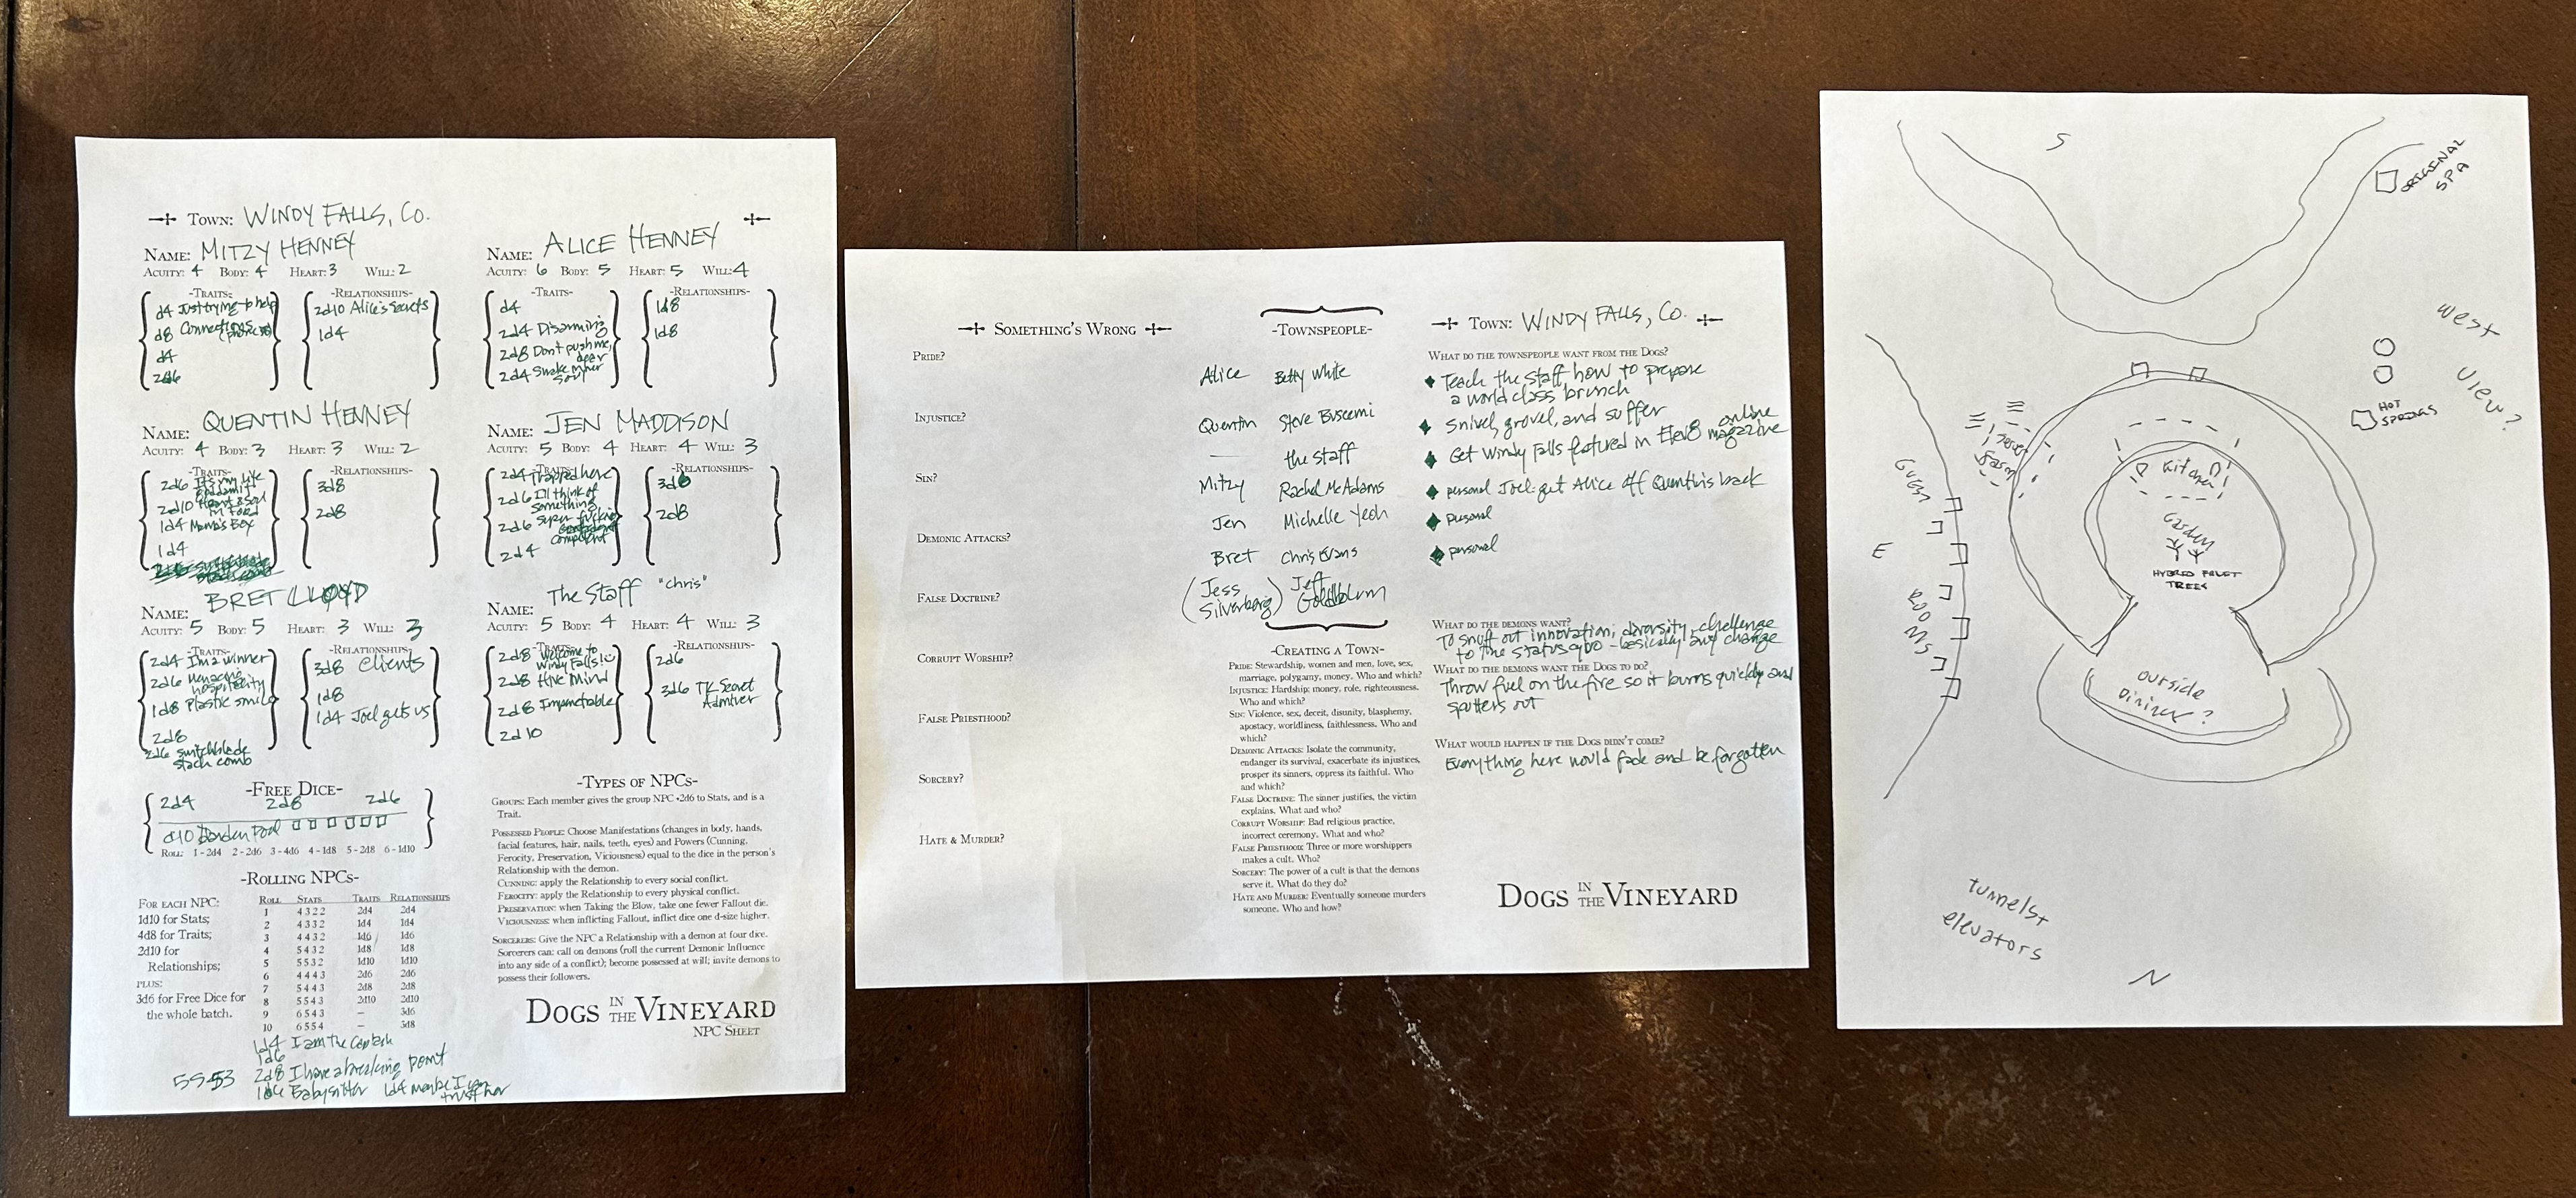 Town: WINDY FALLS, CO.
Name: MITZY HENNEY
Acuity: 4 Body: 4 Heart: 3 Will: 2
-Traits-
d4 Just trying to help
d8 Connections
d4
2d6
-Relationships-
2d10 Alice's secrets
1d4
Name: ALICE HENNEY
Acuity: 6 Body: 5 Heart: 5 Will: 4
-Traits-
d4
2d4 Disarming
2d8 Don't push me, dear
2d4 Snake in her soup
-Relationships-
1d8
1d8
Name: QUENTIN HENNEY
Acuity: 4 Body: 3 Heart: 3 Will: 2
-Traits-
2d6 It's my life goddamit
2d10 Heart & Soul in Food
1d4 Mama's Boy
1d4
-Relationships-
3d8
2d8
Name: JEN MADDISON
Acuity: 5 Body: 4 Heart: 4 Will: 3
-Traits-
2d4 Trapped here
2d6 I'll think of something
2d6 Super fucking competent
2d4
-Relationships-
3d6
2d8
Name: BRET LLOYD
Acuity: 5 Body: 5 Heart: 3 Will: 3
-Traits-
2d4 I'm a winner
2d6 Menacing hospitality
1d8 Plastic smile
2d8
2d6 switchblade stach comb
-Relationships-
3d8 clients
1d8
1d4 Joel gets us
Name: The Staff "chris"
Acuity: 5 Body: 4 Heart: 4 Will: 3
-Traits-
2d8 Welcome to Windy Falls!
2d8 Hive Mind
2d8 Impenetrable
2d10
-Relationships-
2d6
3d6 TK Secret Admirer
-Free Dice-
2d4 2d8 2d6
d10 Pool
Roll: 1 - 2d4 2 - 2d6 3 - 4d6 4 - 1d8 5 - 2d8 6 - 1d10
-Rolling NPCs-
For each NPC:
1d10 for Stats;
4d8 for Traits;
2d10 for
Relationships;
plus:
3d6 for Free Dice for
the whole batch.
Roll Stats Traits Relationships
1 4322 2d4 2d4
2 4332 1d4 1d4
3 4432 1d6 1d6
4 5432 1d8 1d8
5 5532 1d10 1d10
6 4443 2d6 2d6
7 5443 2d8 2d8
8 5543 2d10 2d10
9 6543 – 3d6
10 6554 – 3d8
1d4 I am the
1d6
5553 2d8 I have a breaking point
1d6 Babysitter 1d4 maybe I can trust her
-Types of NPCs-
Groups: Each member gives the group NPC +2d6 to Stats, and is a
Trait.
Possessed People: Choose Manifestations (changes in body, hands,
facial features, hair, nails, teeth, eyes) and Powers (Cunning,
Ferocity, Preservation, Viciousness) equal to the dice in the person's
Relationship with the demon.
Cunning: apply the Relationship to every social conflict.
Ferocity: apply the Relationship to every physical conflict.
Preservation: when Taking the Blow, take one fewer Fallout die.
Viciousness: when inflicting Fallout, inflict dice one d-size higher.
Sorcerers: Give the NPC a Relationship with a demon at four dice.
Sorcerers can: call on demons (roll the current Demonic Influence
into any side of a conflict); become possessed at will; invite demons to
possess their followers.
Dogs in the Vineyard
NPC Sheet
Something's Wrong
Pride?
Injustice?
Sin?
Demonic Attacks?
False Doctrine?
Corrupt Worship?
False Priesthood?
Sorcery?
Hate & Murder?
-Townspeople-
Alice Betty White
Quentin Steve Buscemi
— the staff
Mitzy Rachel McAdams
Jen Michelle Yeoh
Bret Chris Evans
(Jess Silverberg) Jeff Goldblum
-Creating a Town-
Pride: Stewardship, women and men, love, sex,
marriage, polygamy, money. Who and which?
Injustice: Hardship: money, role, righteousness.
Who and which?
Sin: Violence, sex, deceit, disunity, blasphemy,
apostacy, worldliness, faithlessness. Who and
which?
Demonic Attacks: Isolate the community,
endanger its survival, exacerbate its injustices,
prosper its sinners, oppress its faithful. Who
and which?
False Doctrine: The sinner justifies, the victim
explains. What and who?
Corrupt Worship: Bad religious practice,
incorrect ceremony. What and who?
False Priesthood: Three or more worshippers
makes a cult. Who?
Sorcery: The power of a cult is that the demons
serve it. What do they do?
Hate and Murder: Eventually someone murders
someone. Who and how?
Town: WINDY FALLS, CO.
What do the townspeople want from the Dogs?
Teach the staff how to prepare
a world class brunch
Snivel, grovel, and suffer
Get Windy Falls featured in Elev8 online magazine
personal Joel: get Alice off Quentin's back
personal
personal
What do the demons want?
To snuff out innovation, diversity, challenge
to the status quo - basically any change
What do the demons want the Dogs to do?
Throw fuel on the fire so it burns quickly and
sputters out
What would happen if the Dogs didn't come?
Everything here would fade and be forgotten
Dogs in the Vineyard
S
ORIGINAL SPA
West view?
HOT SPRINGS
Kitchen
Garden
HYBRID FRUIT TREES
Guest
E
ROOMS
outside dining?
tunnels +
elevators
N